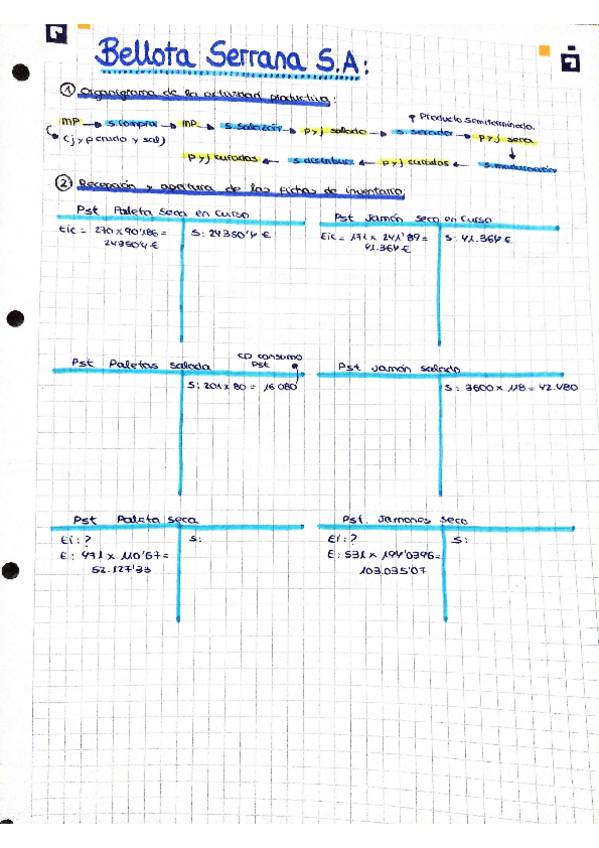 Bellota Serrana S.A:
① Organigrama de la actividad productiva:
↑ Producto Semiterminado.
MP → S. compra → MP → S. Salazón → P y J salado → S. secadero → P y J seca
(J y P crudo y sal)
P y J curados ← S. distribuc ← P y J curados ← S. maduración
② Recepción y apertura de las fichas de inventario:
Pst Paleta Seca en curso
Pst Jamón seco en curso
Eic = 270 x 90'186 =
24350'4 €
S: 24350'4 €
Eic = 171 x 241'89 =
41.364 €
S: 41.364 €
CP consumo
Pst
Pst Paletas Salada
Pst Jamón Salado
S: 201 x 80 = 16 080
S: 3600 x 118 = 42.480
Pst Paleta seca
Pst. Jamones Seco
Ei: ?
S:
E: 471 x 110'67 =
52.127'33
Ei: ?
S:
E: 531 x 194'0396 =
103.035'07